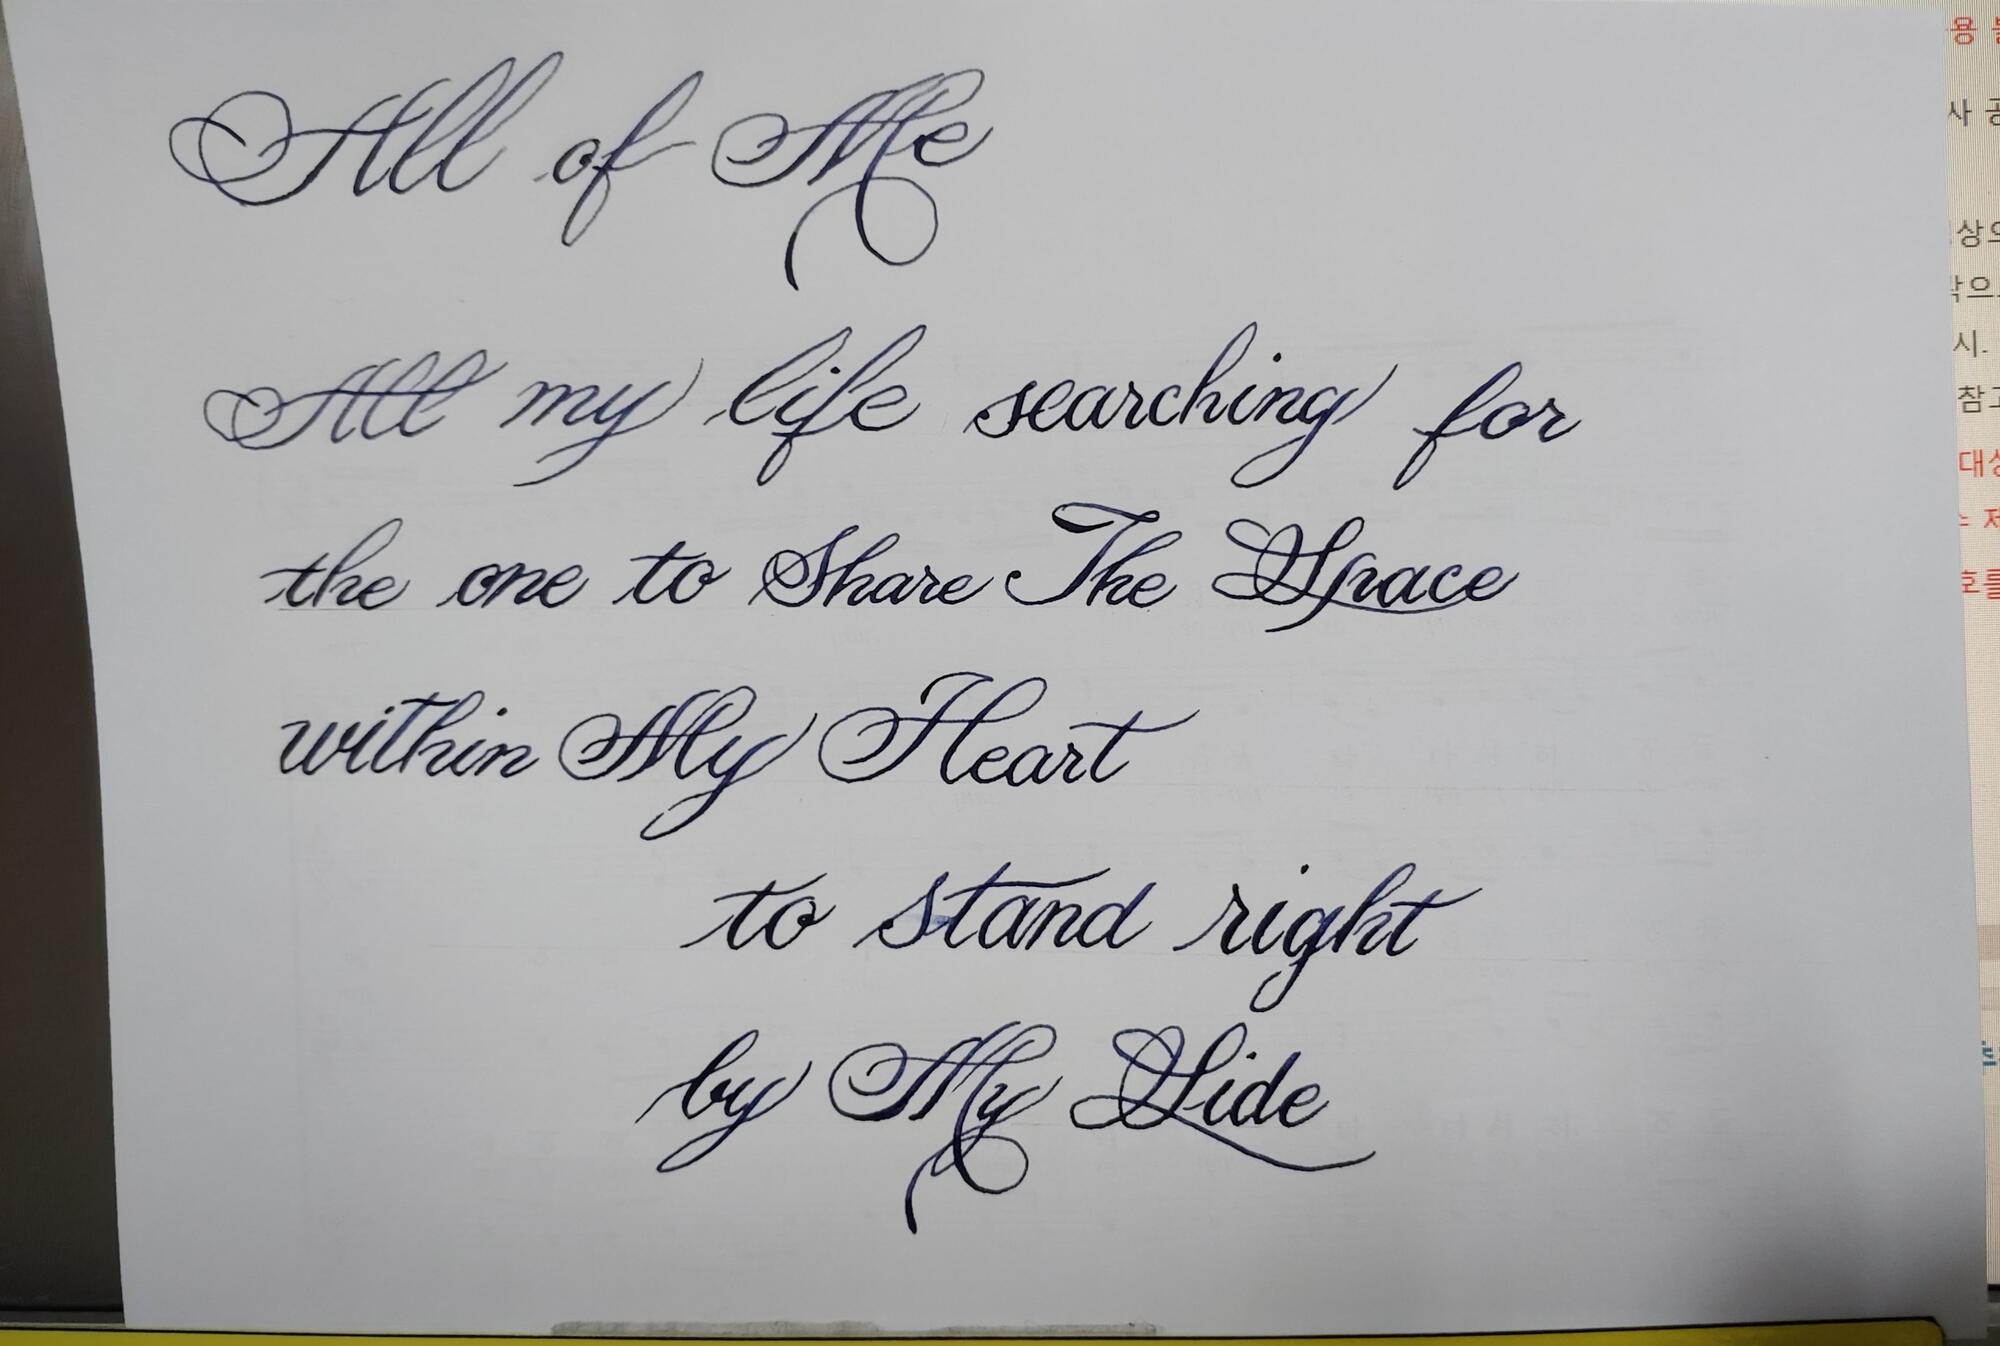 All of Me
All my life searching for
the one to Share The Space
within My Heart
to stand right
by My Side
용
사 공
상으
시.
참고
대상
호를